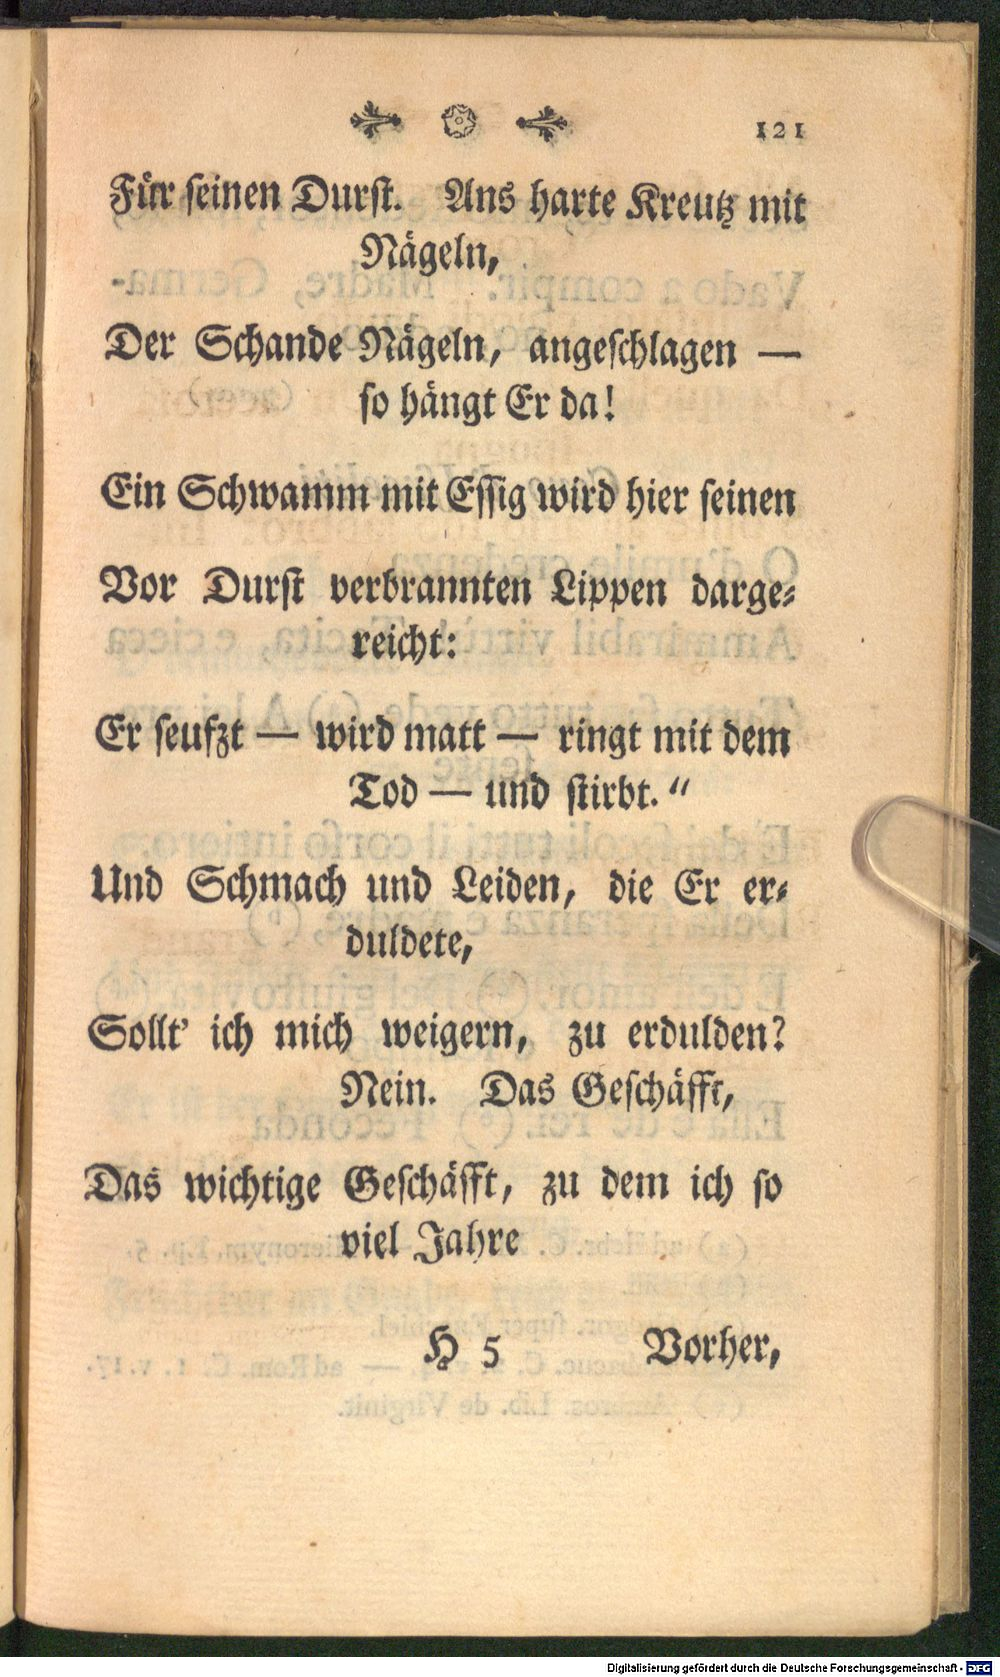 121
Für seinen Durst. Ans harte Kreutz mit
Nägeln,
Der Schande Nägeln, angeschlagen —
so hängt Er da!
Ein Schwamm mit Essig wird hier seinen
Vor Durst verbrannten Lippen darge-
reicht:
Er seufzt — wird matt — ringt mit dem
Tod — und stirbt. “
Und Schmach und Leiden, die Er er-
duldete,
Sollt' ich mich weigern, zu erdulden?
Nein. Das Geschäfft,
Das wichtige Geschäfft, zu dem ich so
viel Jahre
H 5 Vorher,
Digitalisierung gefördert durch die Deutsche Forschungsgemeinschaft - DFG